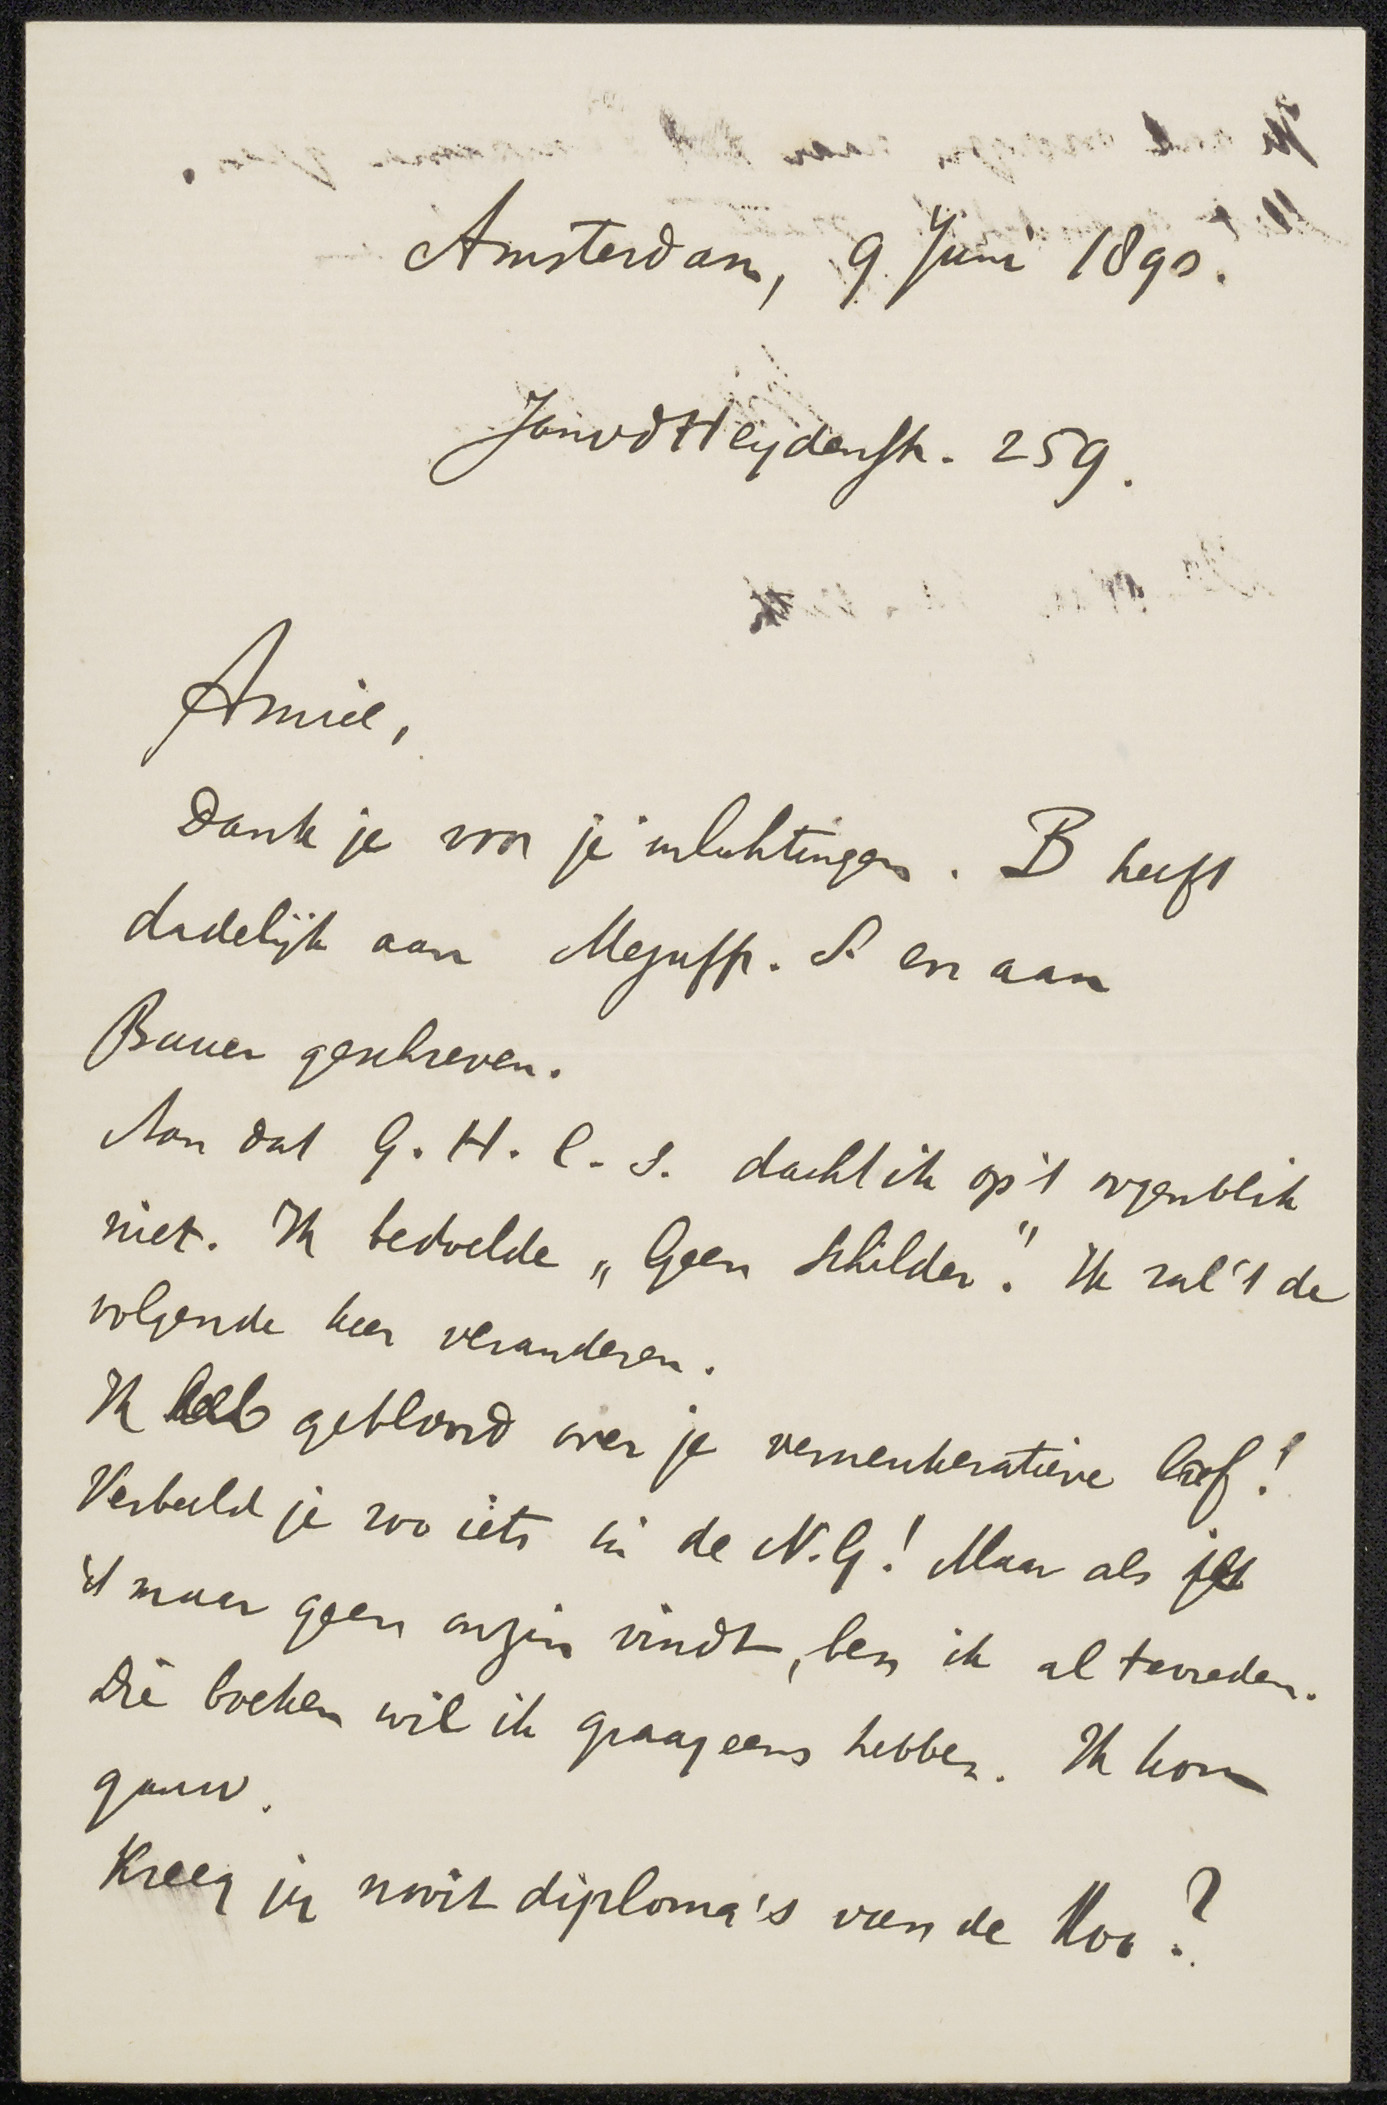 Amsterdam, 9 Juni 1890.
JanvdHeydenstr. 259.
Amice,
Dank je voor je inlichtingen. B heeft
dadelijk aan Mejuffr. S. en aan
Bauer geschreven.
Aan dat G. H. C. S. dacht ik op 't oogenblik
niet. Ik bedoelde „Geen Schilder". Ik zal 't de
volgende keer veranderen.
Ik heb gebloosd over je remunkeratieve brief!
Verbeeld je zoo iets in de N.G! Maar als je
't maar geen onzin vindt, ben ik al tevreden.
Die boeken wil ik graag eens hebben. Ik kom
gauw.
Kreeg jij nooit diploma's van de